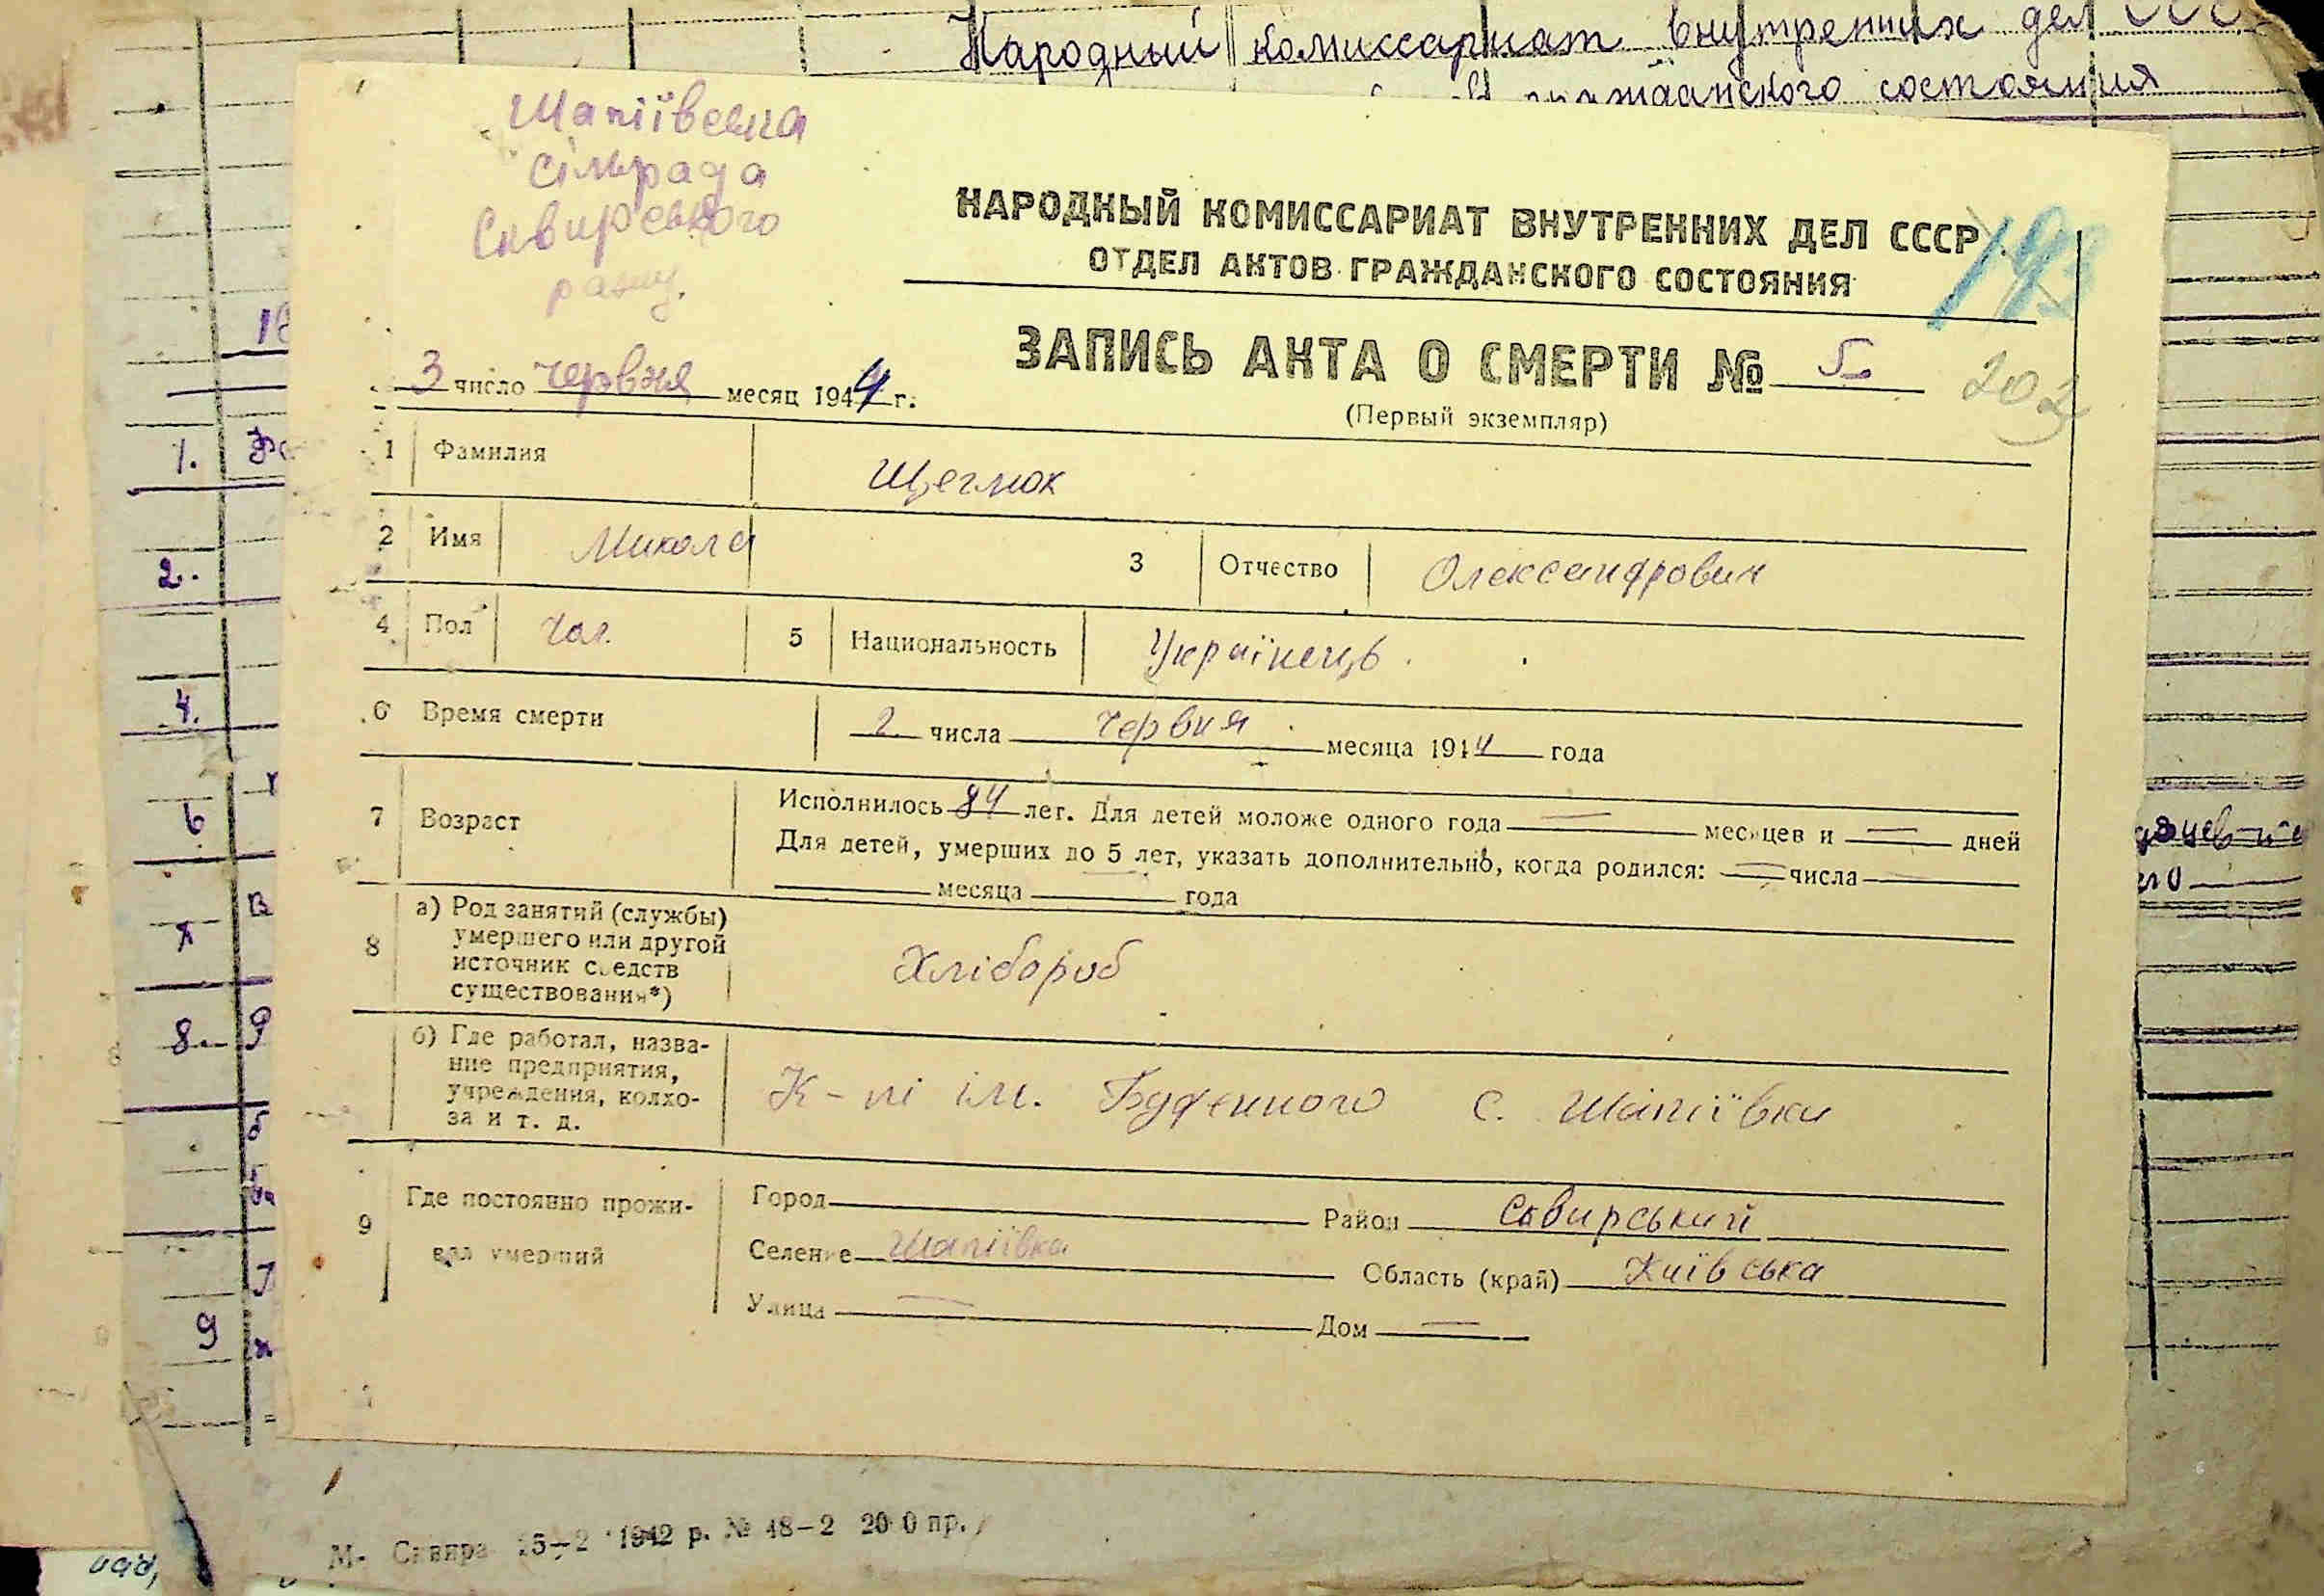 Народный комиссариат внутренних дел
гражданского состояния
Шапіївська
сільрада
Сквирського
раону.
НАРОДНЫЙ КОМИССАРИАТ ВНУТРЕННИХ ДЕЛ СССР
ОТДЕЛ АКТОВ ГРАЖДАНСКОГО СОСТОЯНИЯ
193
ЗАПИСЬ АКТА О СМЕРТИ № 5
203
3 число червня месяц 1944 г.
(Первый экземпляр)
1 Фамилия Щеглюк
2 Имя Микола 3 Отчество Олександрович
4 Пол чол. 5 Национальность Українець.
6 Время смерти 2 числа червня месяца 1944 года
7 Возраст Исполнилось 84 лет. Для детей моложе одного года — месяцев и — дней
Для детей, умерших до 5 лет, указать дополнительно, когда родился: — числа
месяца года
8 а) Род занятий (службы)
умершего или другой
источник средств
существования*)
Хлібороб
б) Где работал, назва-
ние предприятия,
учреждения, колхо-
за и т. д.
К-пі ім. Буденного с. Шапіївки
9 Где постоянно прожи-
вал умерший
Город Район Сквирський
Селение Шапіївка Область (край) Київська
Улица — Дом —
1.
2.
4.
6
8
9
М. Сквира 25—2 1942 р. № 48—2 2000 пр.